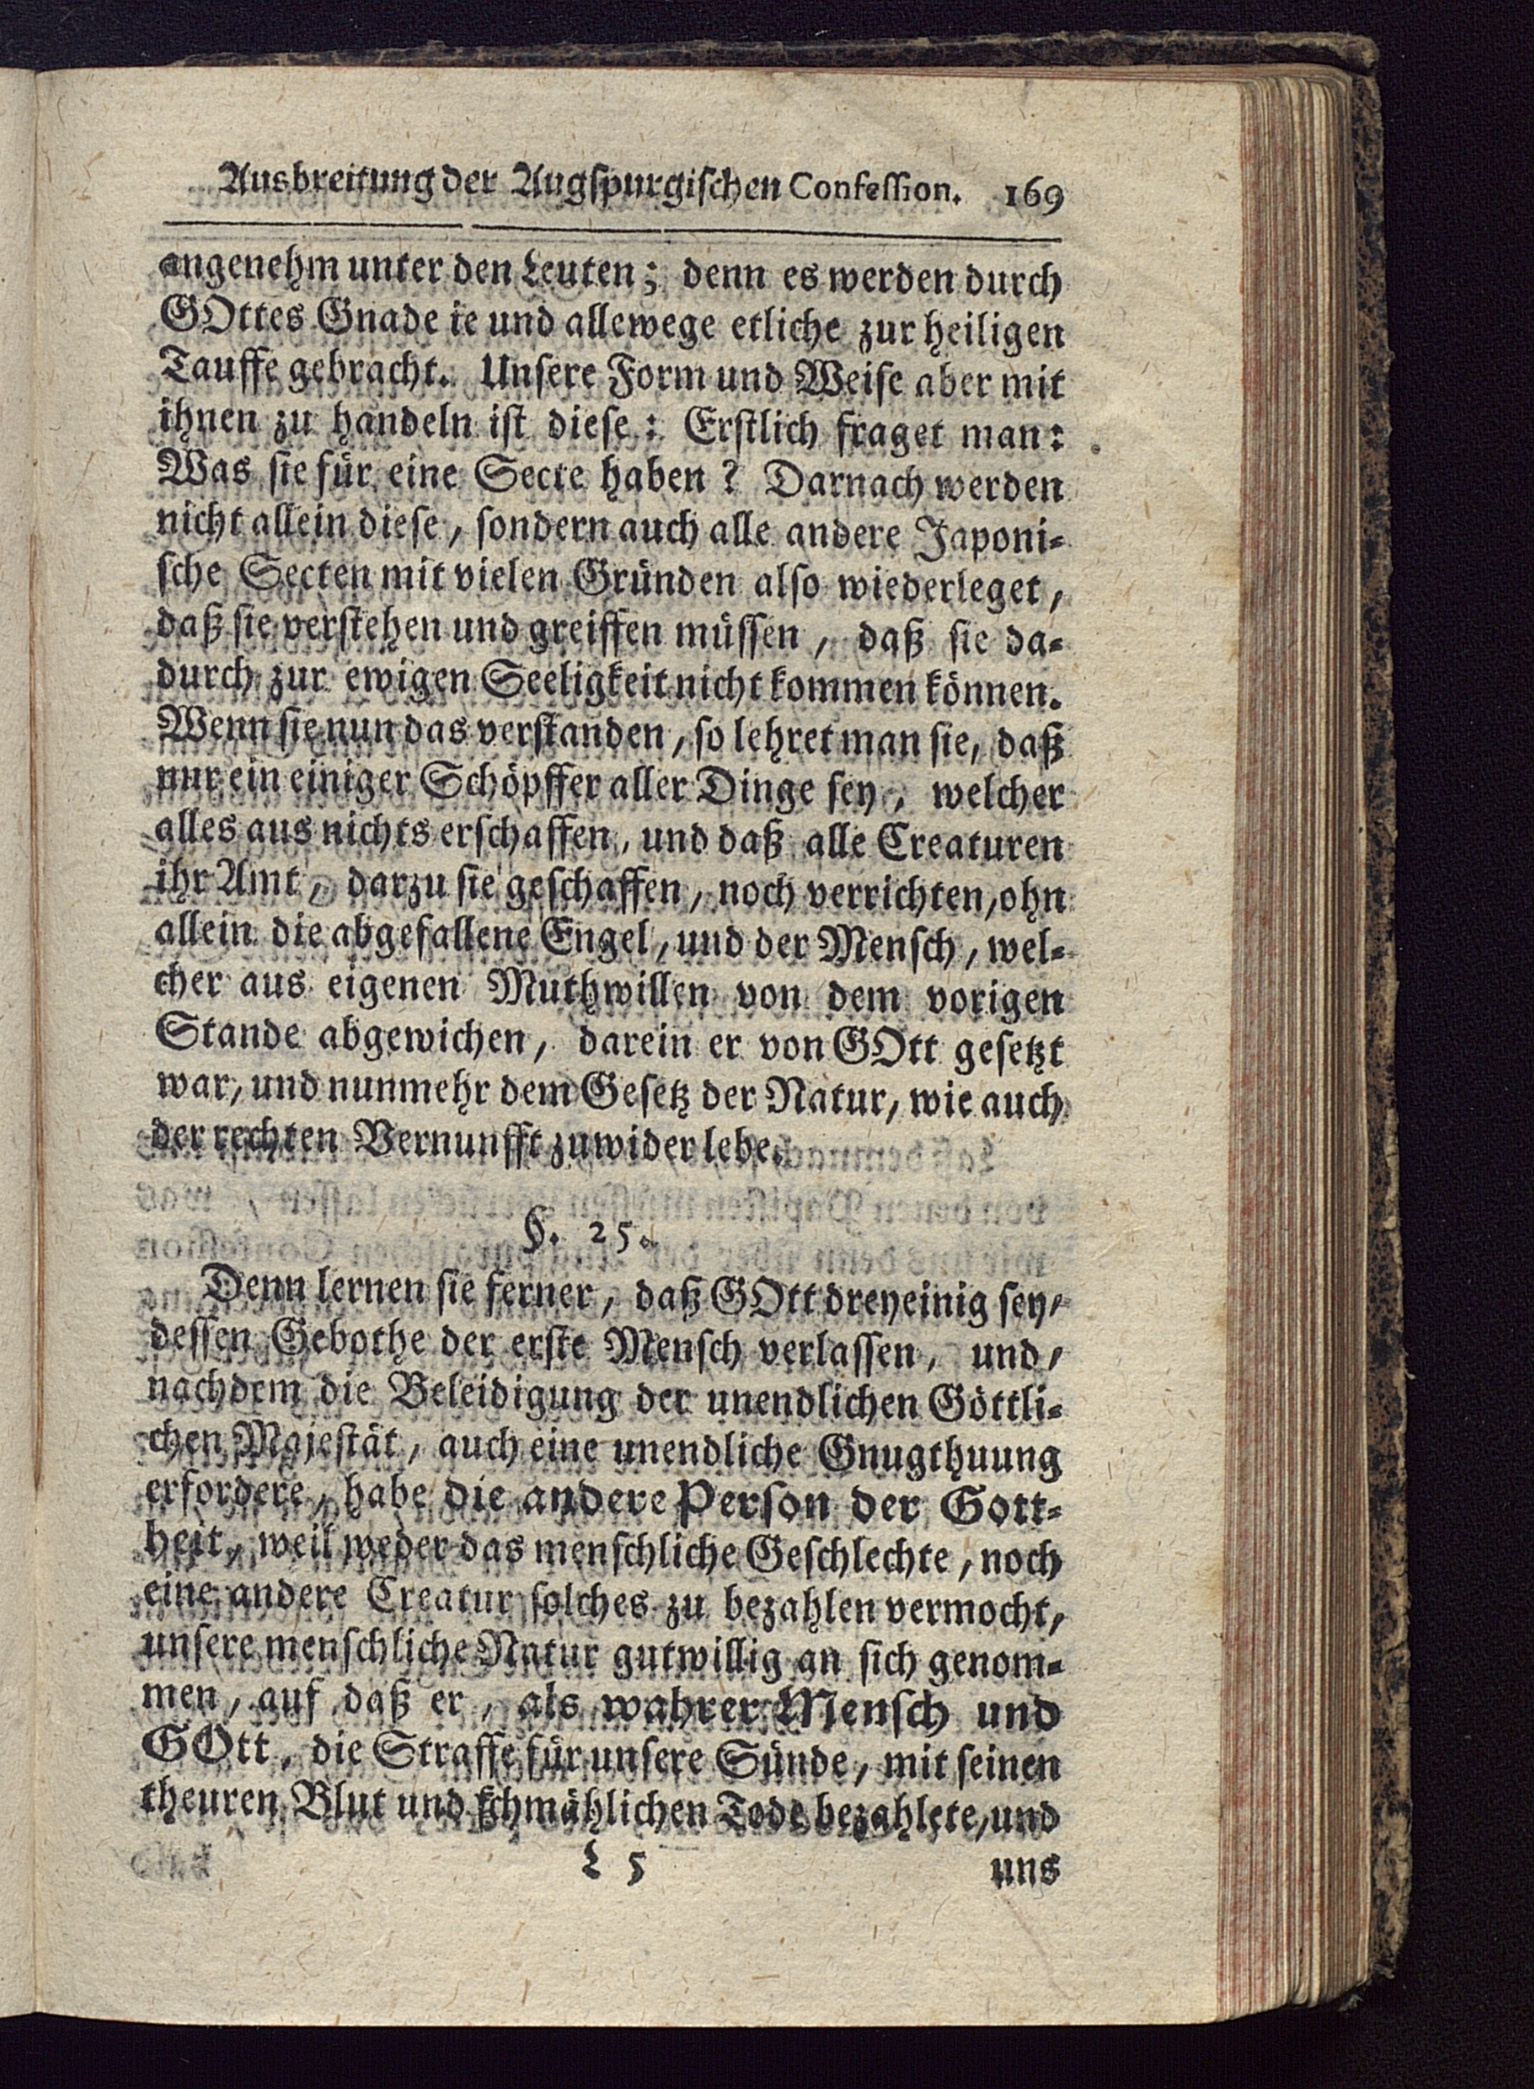 Ausbreitung der Augspurgischen Confession. 169
angenehm unter den Leuten; denn es werden durch
GOttes Gnade ie und allewege etliche zur heiligen
Tauffe gebracht. Unsere Form und Weise aber mit
ihnen zu handeln ist diese: Erstlich fraget man:
Was sie für eine Secte haben? Darnach werden
nicht allein diese, sondern auch alle andere Japoni-
sche Secten mit vielen Gründen also wiederleget,
daß sie verstehen und greiffen müssen, daß sie da-
durch zur ewigen Seeligkeit nicht kommen können.
Wenn sie nun das verstanden, so lehret man sie, daß
nur ein einiger Schöpffer aller Dinge sey, welcher
alles aus nichts erschaffen, und daß alle Creaturen
ihr Amt, darzu sie geschaffen, noch verrichten, ohn
allein die abgefallene Engel, und der Mensch, wel-
cher aus eigenen Muthwillen von dem vorigen
Stande abgewichen, darein er von GOtt gesetzt
war, und nunmehr dem Gesetz der Natur, wie auch
der rechten Vernunfft zuwider lebe.
§. 25.
Denn lernen sie ferner, daß GOtt dreyeinig sey,
dessen Gebothe der erste Mensch verlassen, und,
nachdem die Beleidigung der unendlichen Göttli-
chen Majestät, auch eine unendliche Gnugthuung
erfordere, habe die andere Person der Gott-
heit, weil weder das menschliche Geschlechte, noch
eine andere Creatur solches zu bezahlen vermocht,
unsere menschliche Natur gutwillig an sich genom-
men, auf daß er, als wahrer Mensch und
GOtt, die Straffe für unsere Sünde, mit seinen
theuren Blut und schmählichen Tode bezahlete, und
L 5 uns